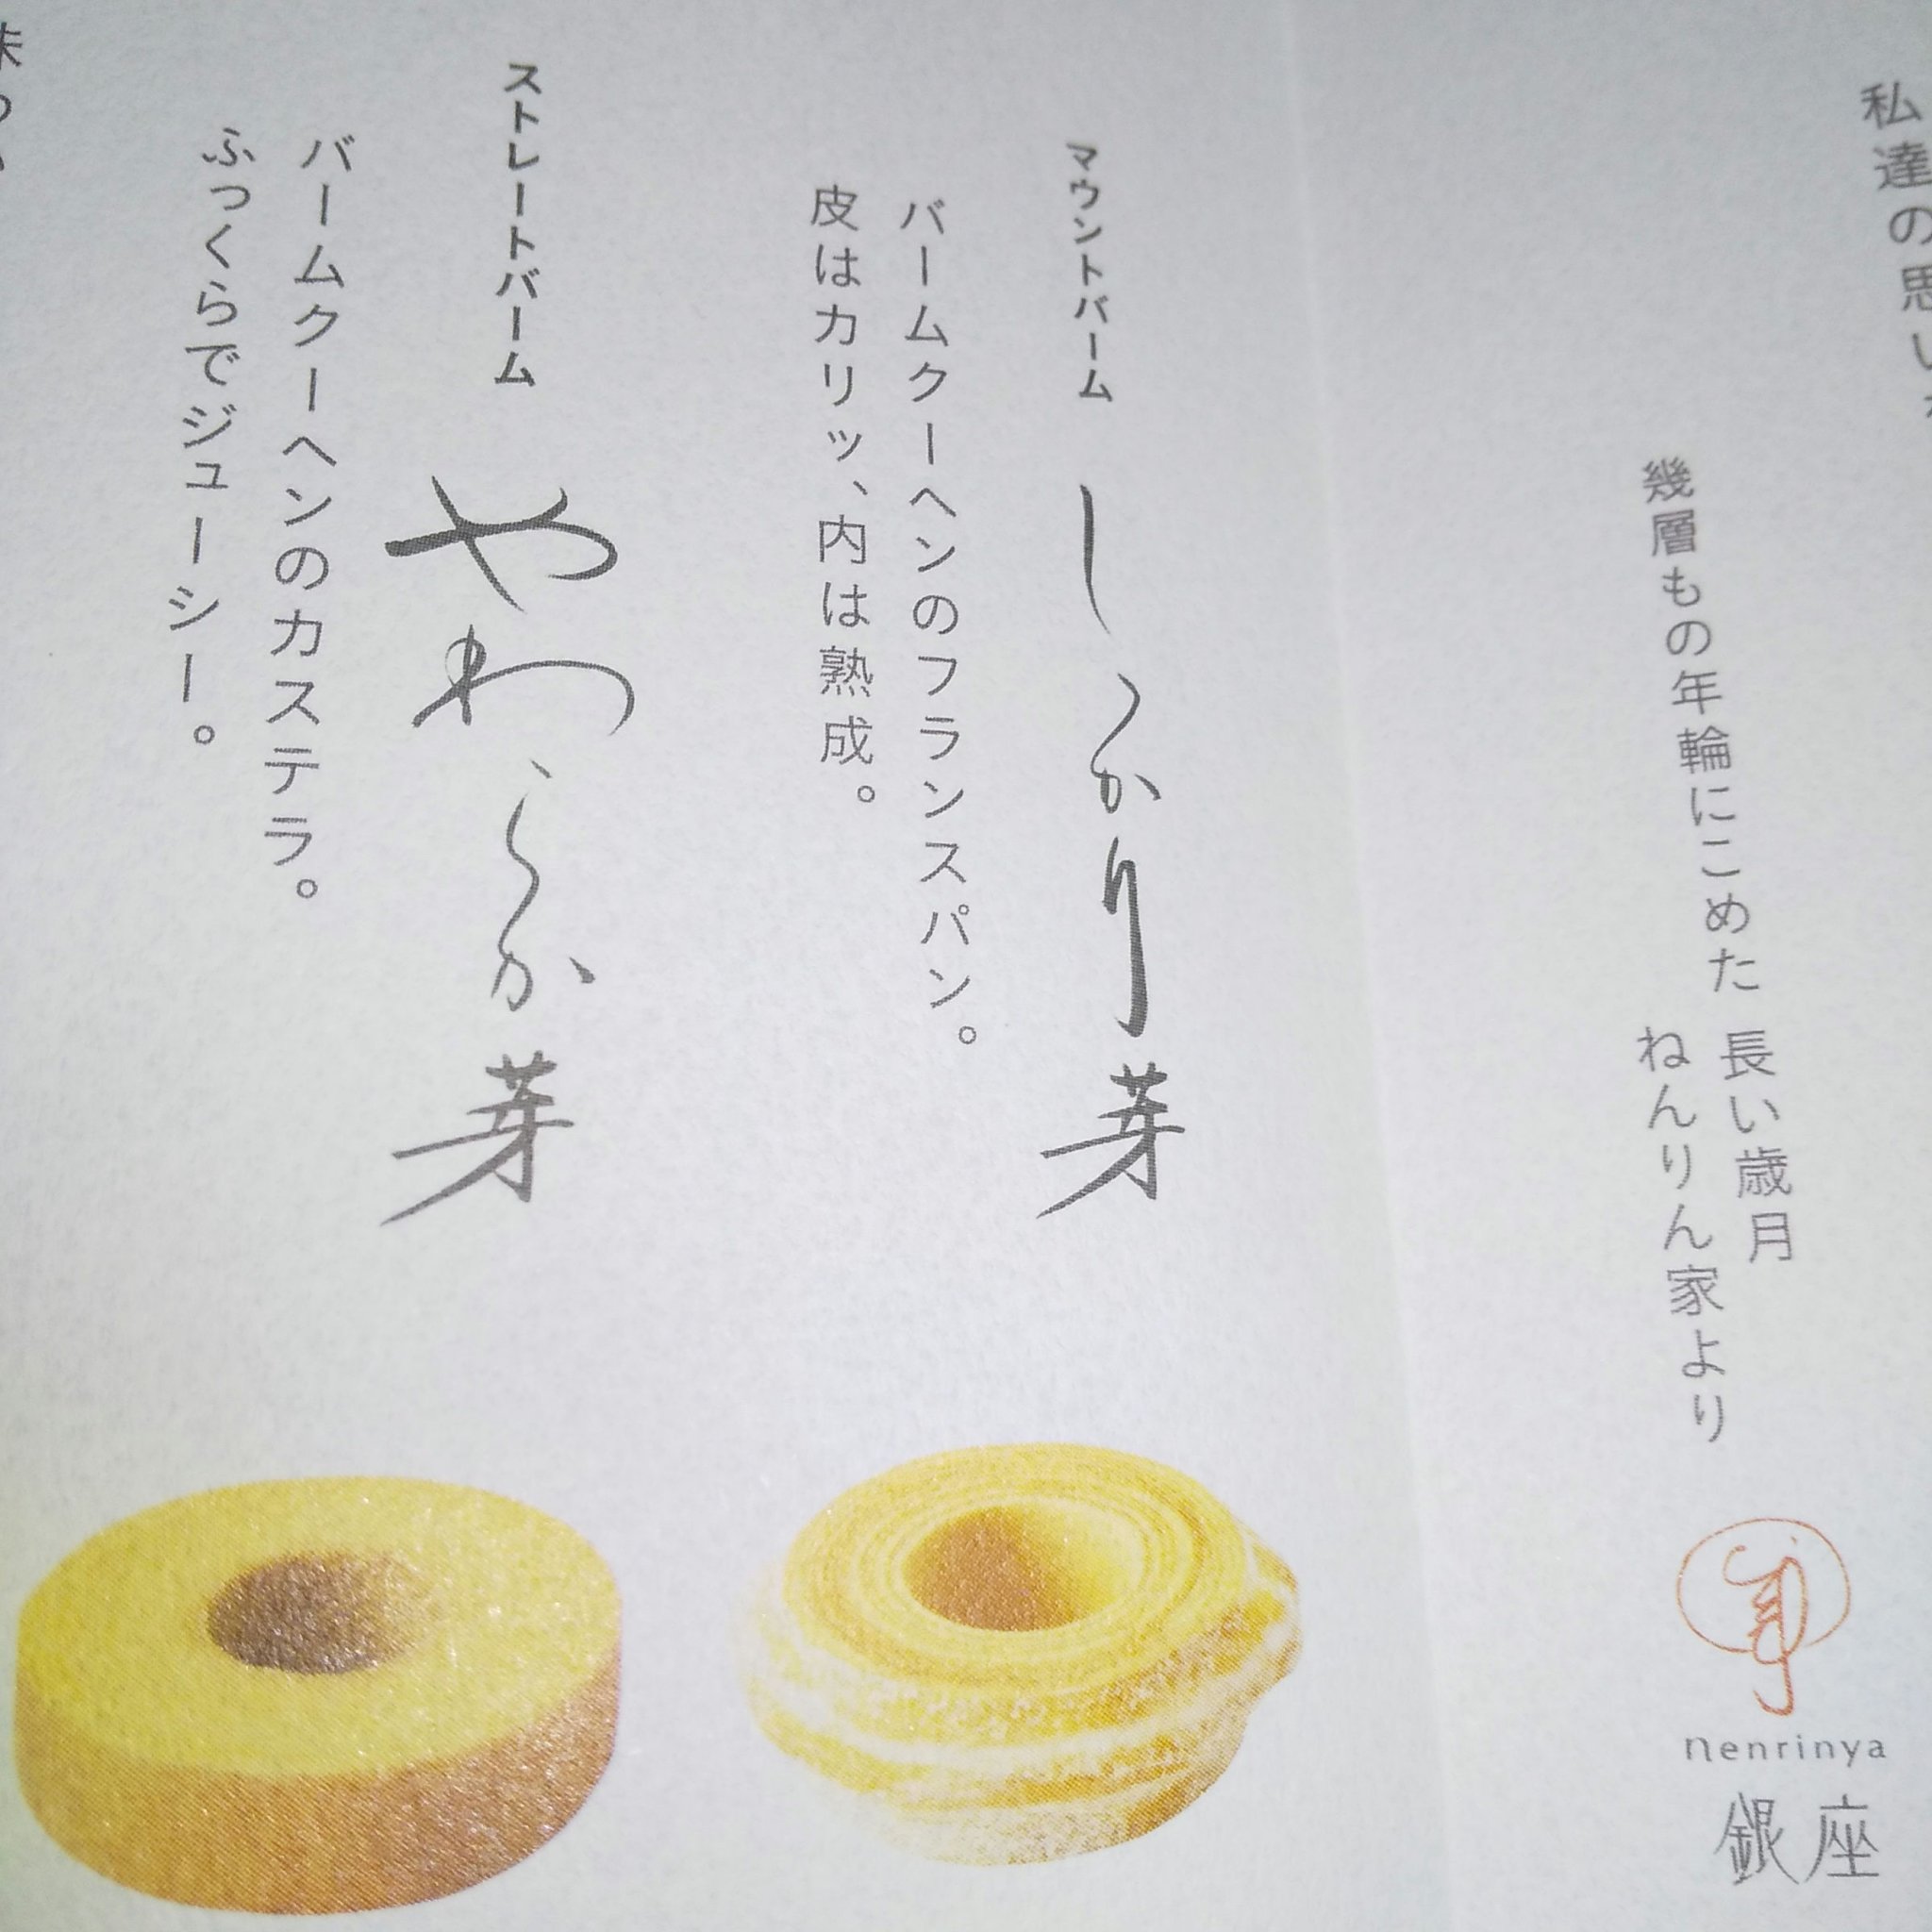 私達の思い
幾層もの年輪にこめた
長い歳月
ねんりん家より
nenrinya
銀座
マウントバーム
しっかり芽
バームクーヘンのフランスパン。
皮はカリッ、内は熟成。
ストレートバーム
やわらか芽
バームクーヘンのカステラ。
ふっくらでジューシー。